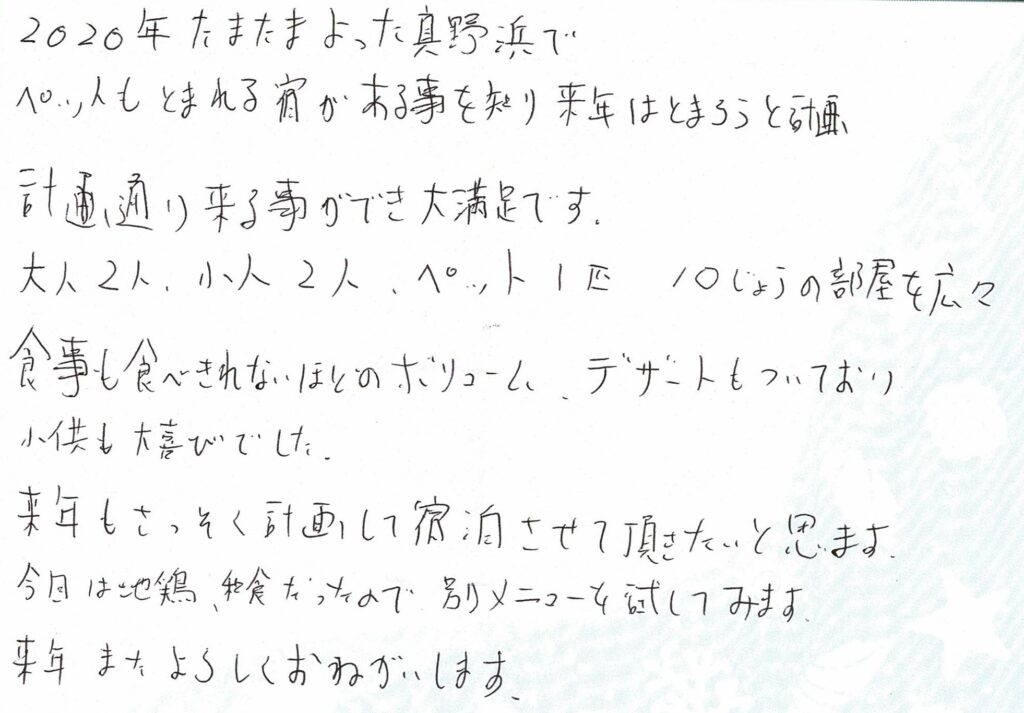 2020年たまたまよった真野浜で
ペット人もとまれる宿がある事を知り来年はとまろうと計画
計画通り来る事ができ大満足です.
大人2人、小人2人、ペット1匹 10じょうの部屋を広々
食事も食べきれないほどのボリューム、デザートもついており
小供も大喜びでした.
来年もさっそく計画して宿泊させて頂きたいと思います.
今回は地鶏、和食だったので別メニューを試してみます.
来年またよろしくおねがいします.